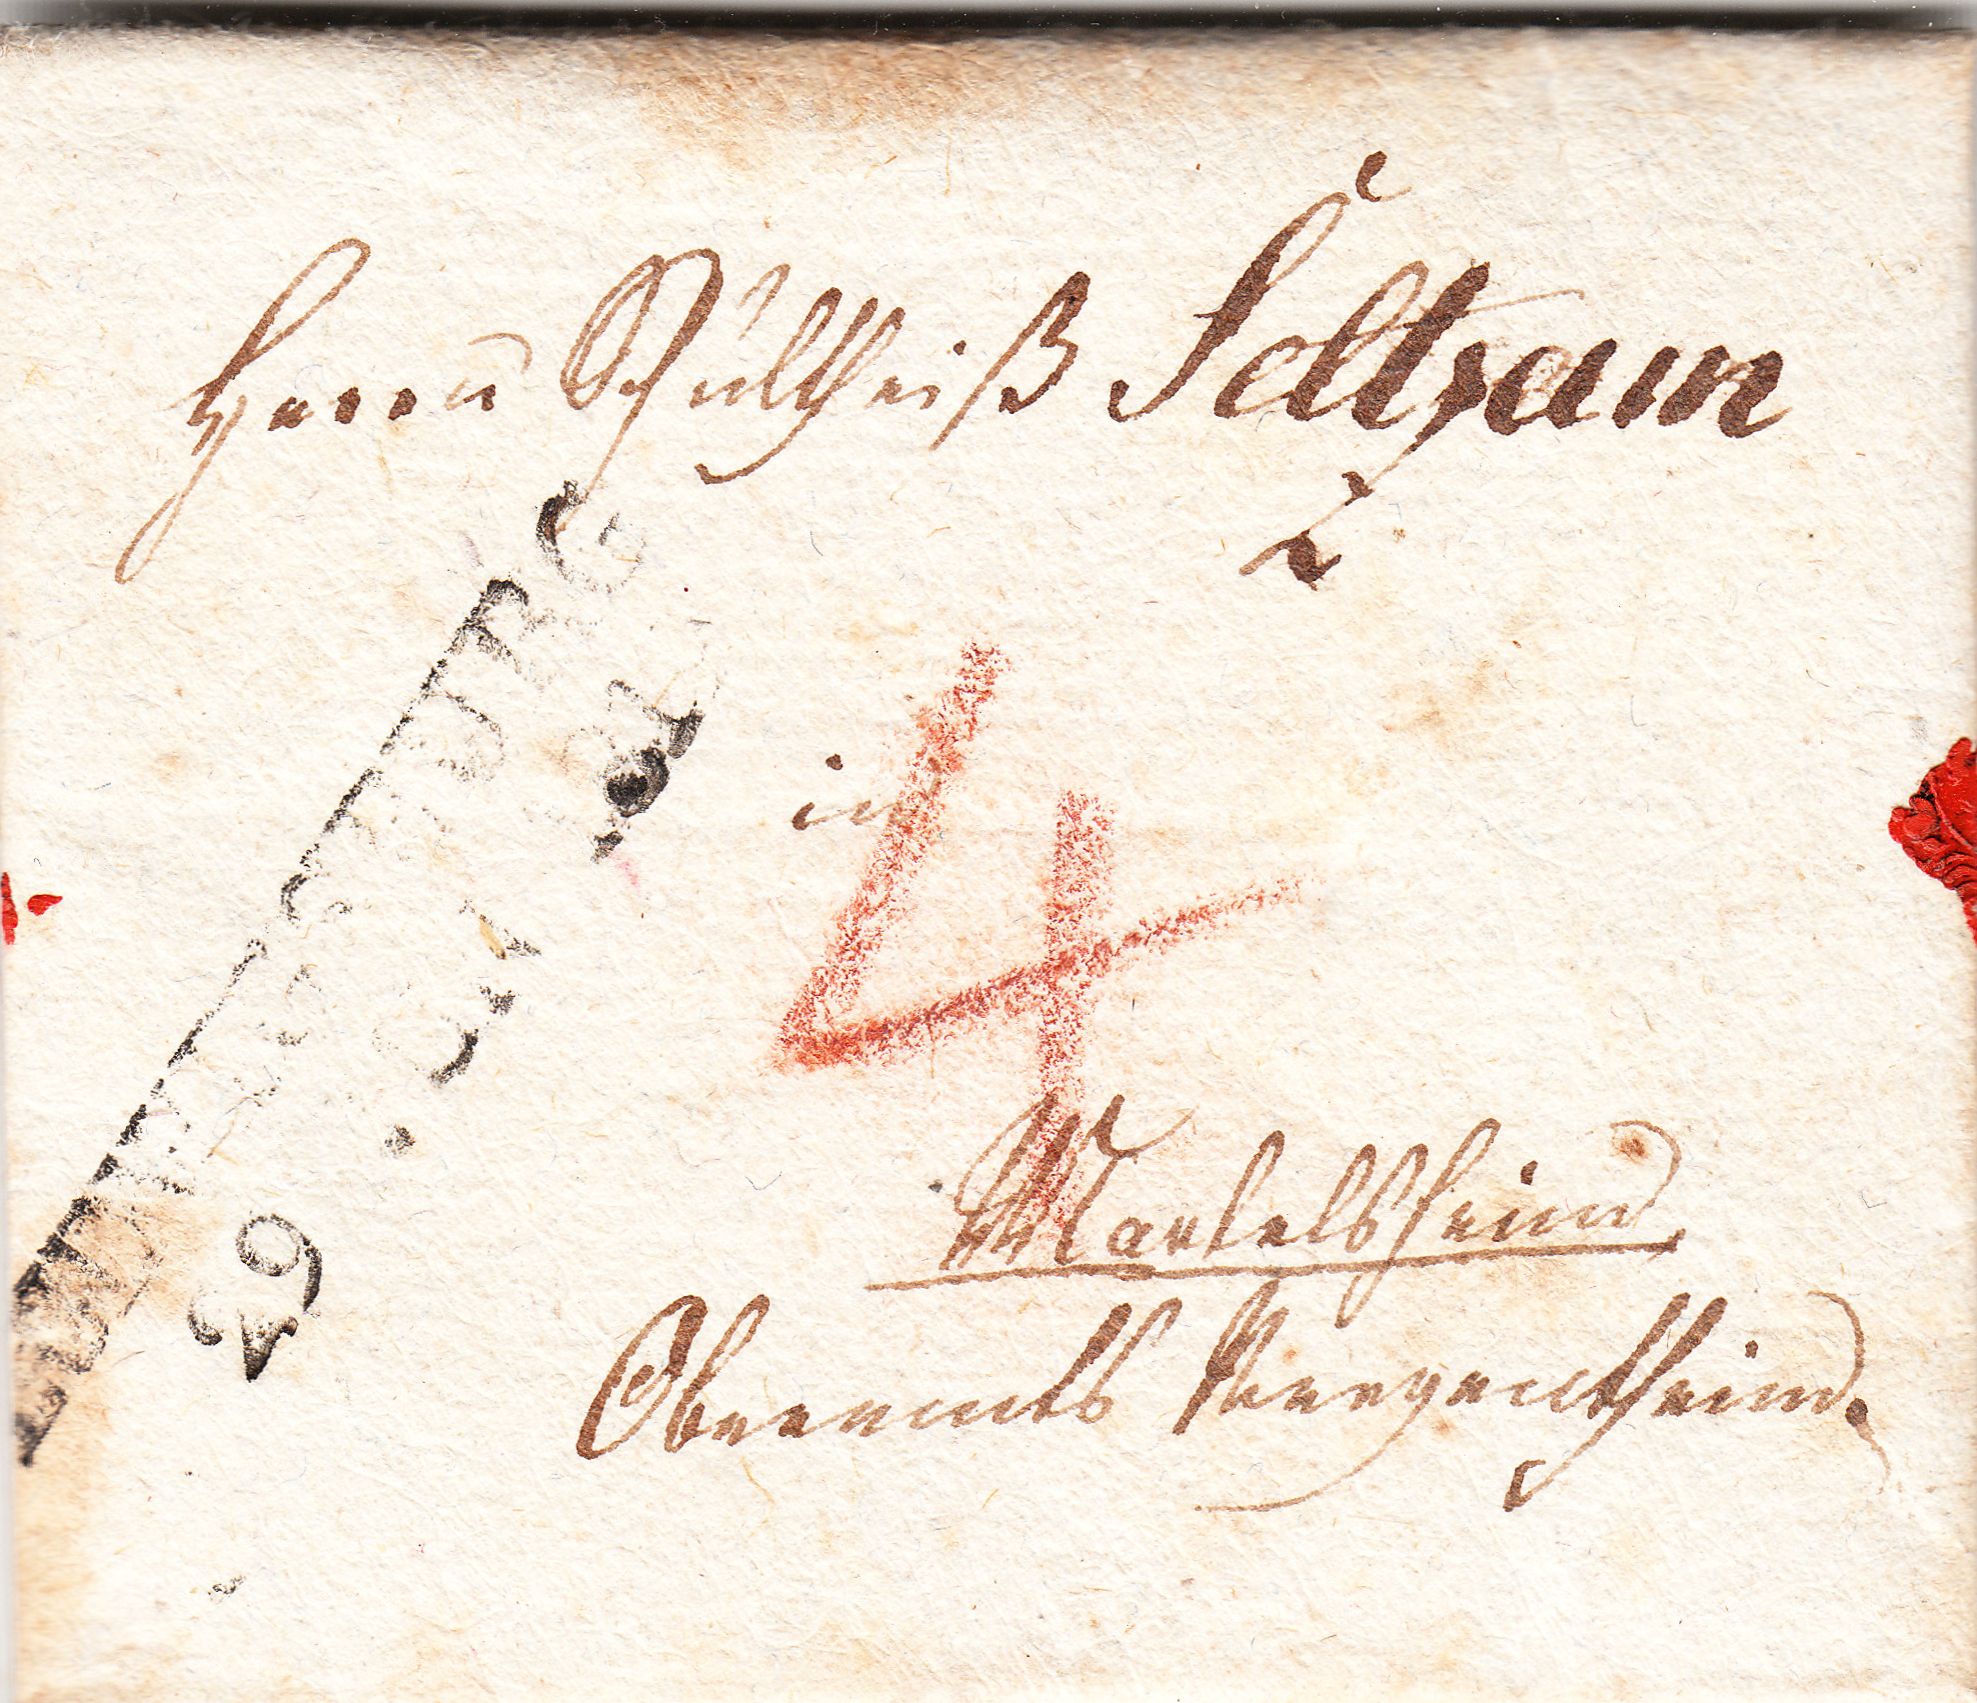 Herrn Schultheiß Seltsam
in
4
Markelsheim,
Oberamts Mergentheim.
LUDWIGSBURG